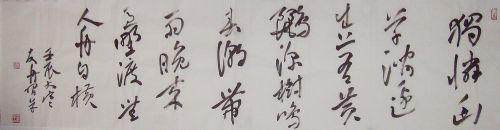 獨憐幽
草澗邊
生上有黃
鸝深樹鳴
春潮帶
雨晚來
急野渡無
人舟自橫
壬辰